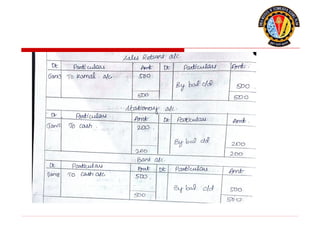 Sales Return a/c
Dt Particulars Amt Dt Particulars Amt.
Jan5 To Komal a/c 500
By bal c/d 500
500 500
Stationory a/c
Dt Particulars Amt Dt Particulars Amt
To cash 200
By bal c/d 200
200 200
Bank a/c
Dt Particulars Amt Dt Particulars Amt.
To cash a/c 500
By bal c/d 500
500 500